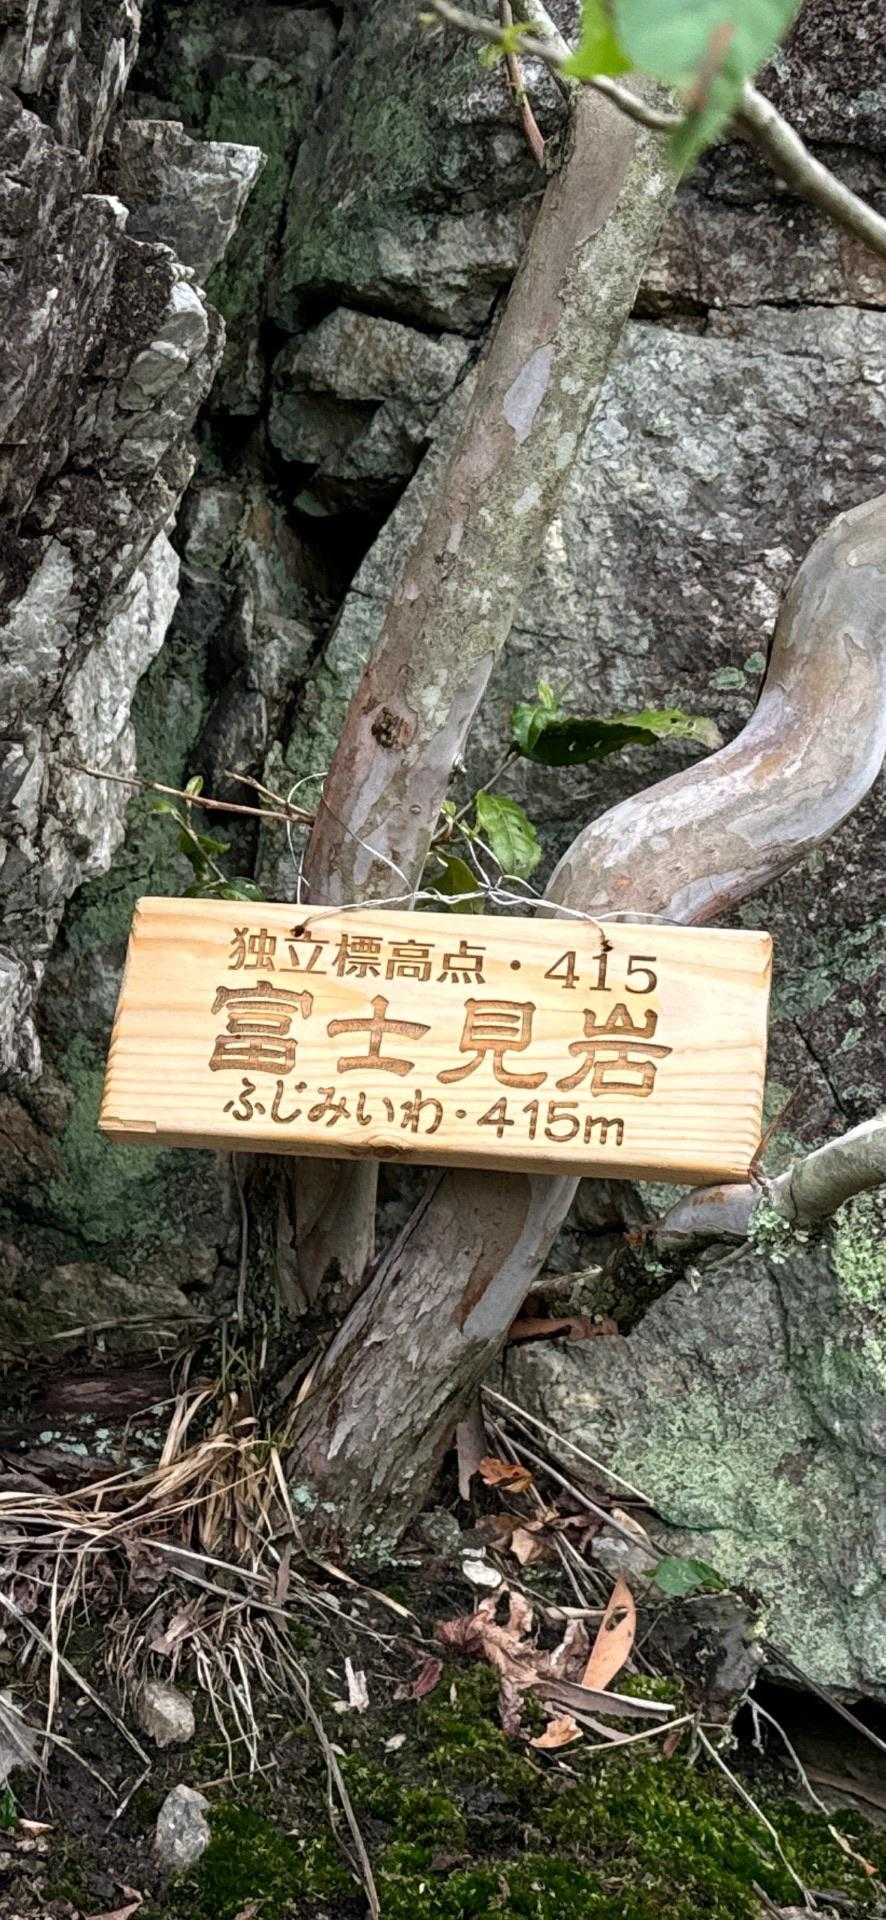 独立標高点・415
富士見岩
ふじみいわ・415m